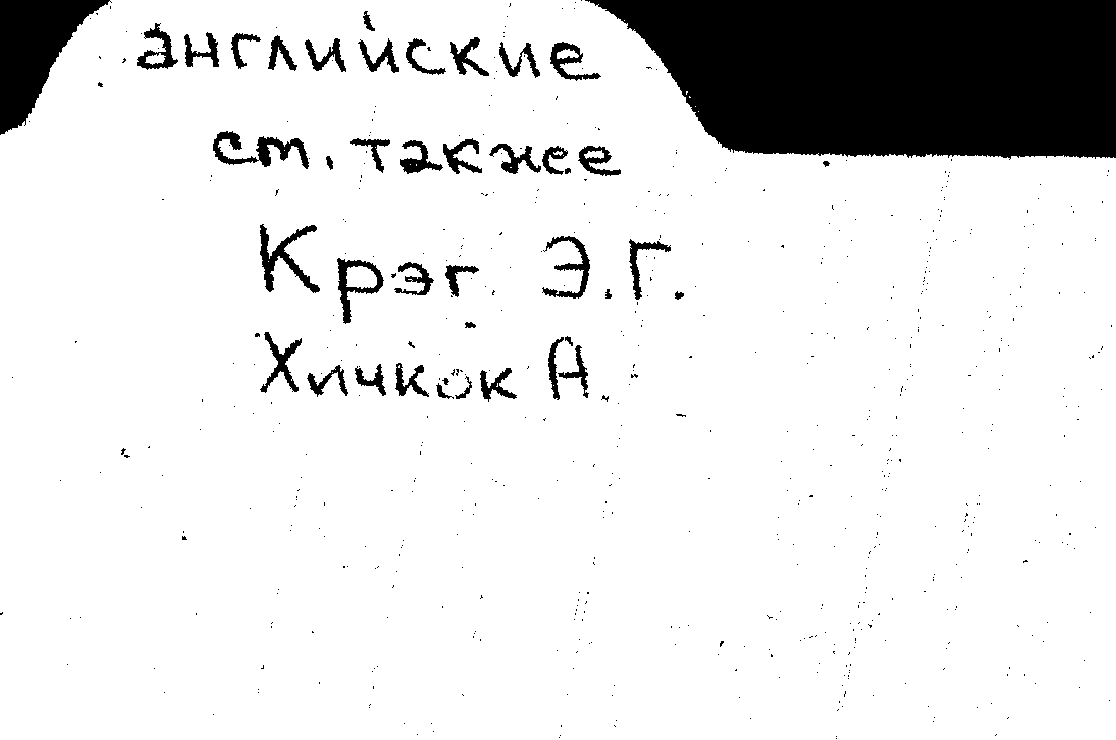 английские
ст. также
Крэг. Э.Г.
Хичкок А.